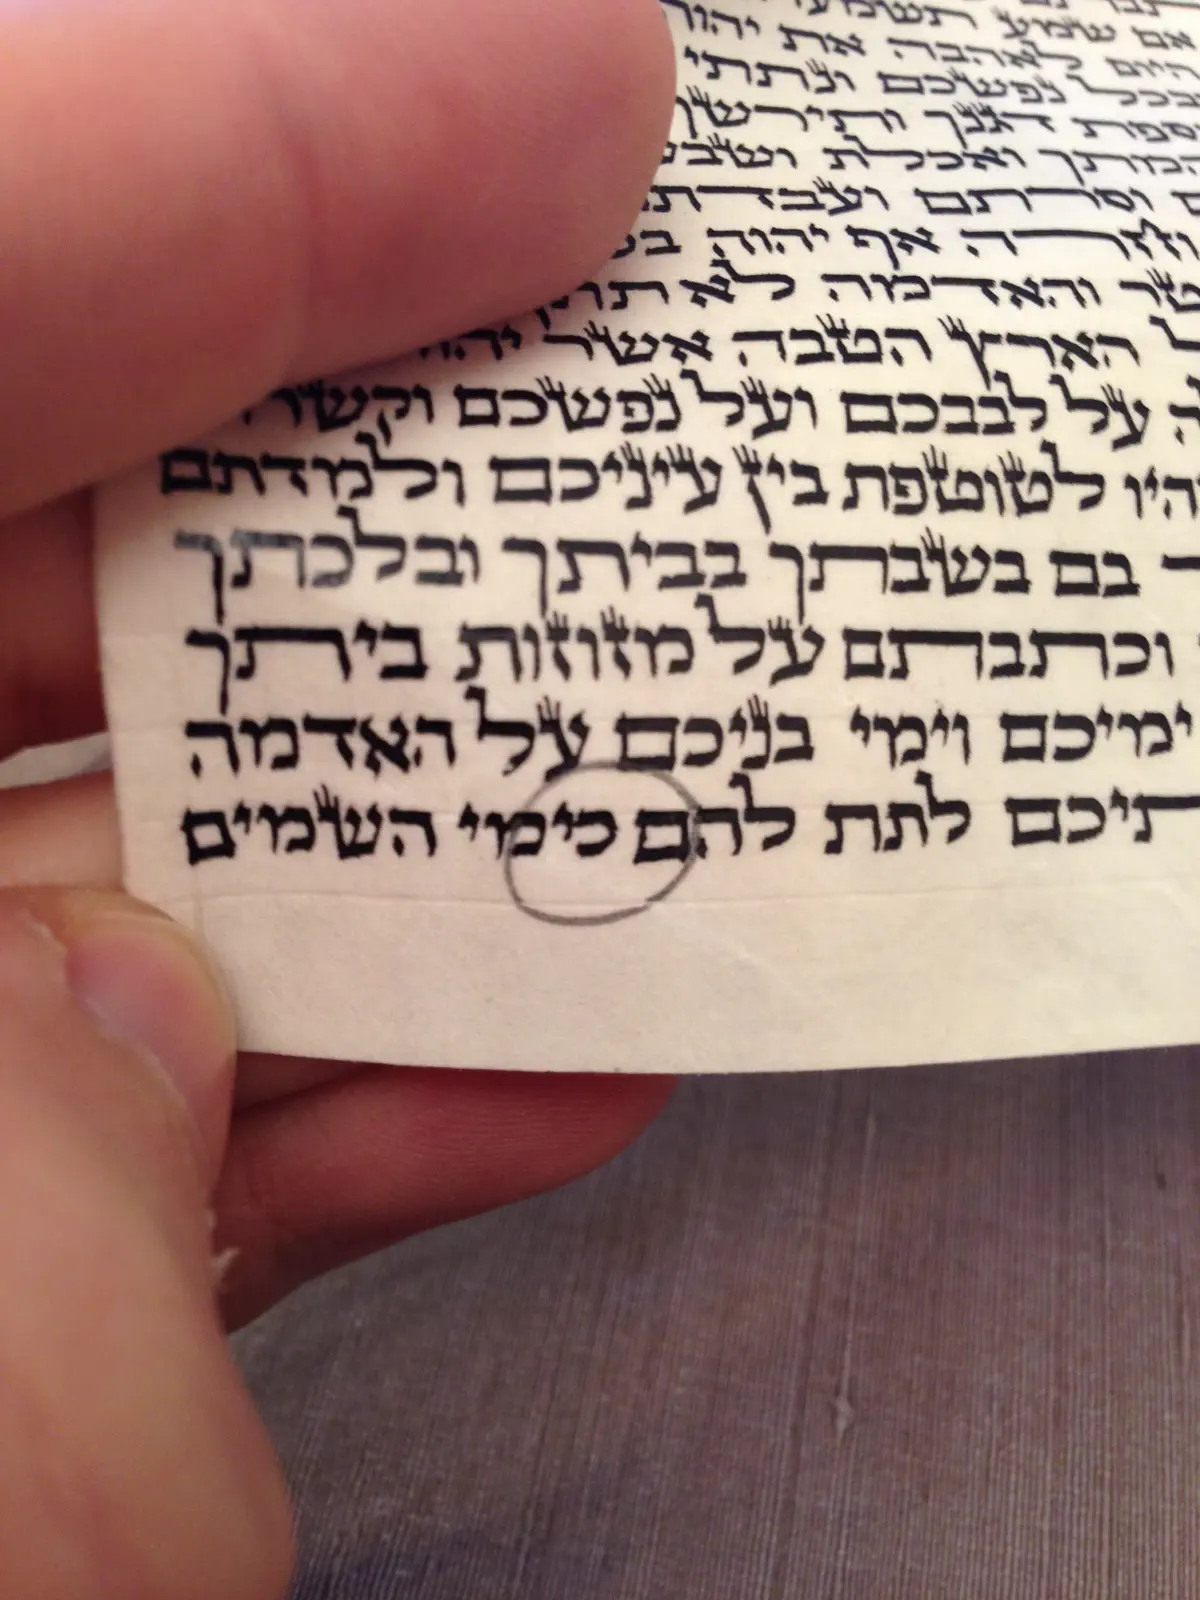 אם שמע תשמעו
היום לאהבה את יהוה
בכל נפשכם ונתתי
ספת דגנך ותירשך
המתך ואכלת ושבע
ם וסרתם ועבדת
וחרה אף יהוה
טר והאדמה לא תתן
ל הארץ הטבה אשר יהו
ה על לבבכם ועל נפשכם וקשר
והיו לטוטפת בין עיניכם ולמדתם
ר בם בשבתך בביתך ובלכתך
וכתבתם על מזוזות ביתך
ימיכם וימי בניכם על האדמה
תיכם לתת להם כימי השמים